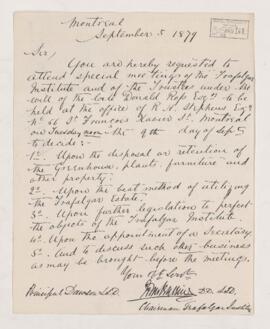 Montreal
September 5 1879
Sir,
You are hereby requested to
attend special meetings of the Trafalgar
Institute and of the Trustees under the
will of the late Donald Ross Esq. to be
held at the office of R. A. Stephens Esq.
No. 61 St Francois Xavier St. Montreal
on Tuesday noon the 9th day of Sept
to decide:—
1° Upon the disposal or retention of
the Greenhouse, plants, furniture and
other property.
2° Upon the best method of utilizing
the Trafalgar Estate.
3° Upon further legislation to perfect
the objects of the Trafalgar Institute.
4° Upon the appointment of a Secretary
5° And to discuss such other business
as may be brought before the meetings.
Your obt Servt
D.D.
Principal Dawson LL.D.
Chairman Trafalgar Institute